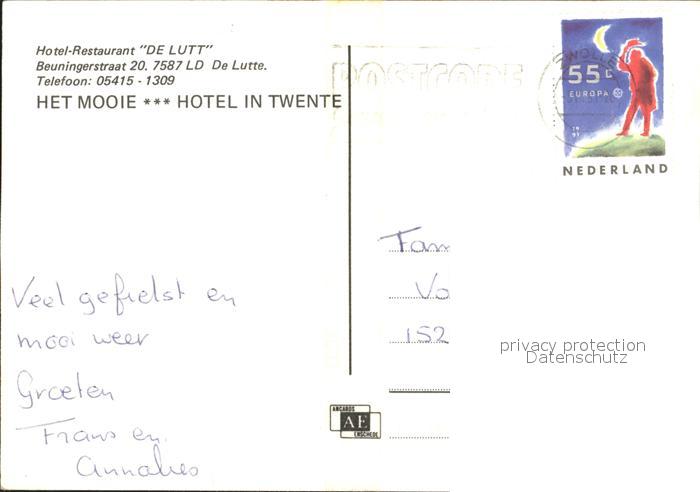 Hotel-Restaurant "DE LUTT"
Beuningerstraat 20. 7587 LD De Lutte.
Telefoon: 05415 - 1309
HET MOOIE *** HOTEL IN TWENTE
POSTCODE
ZWOLLE
55c
EUROPA
1991
NEDERLAND
Veel gefietst en
mooi weer
Groeten
Frans en
Annalies
Fam
Vo
152
privacy protection
Datenschutz
ANCARDS
AE
ENSCHEDE